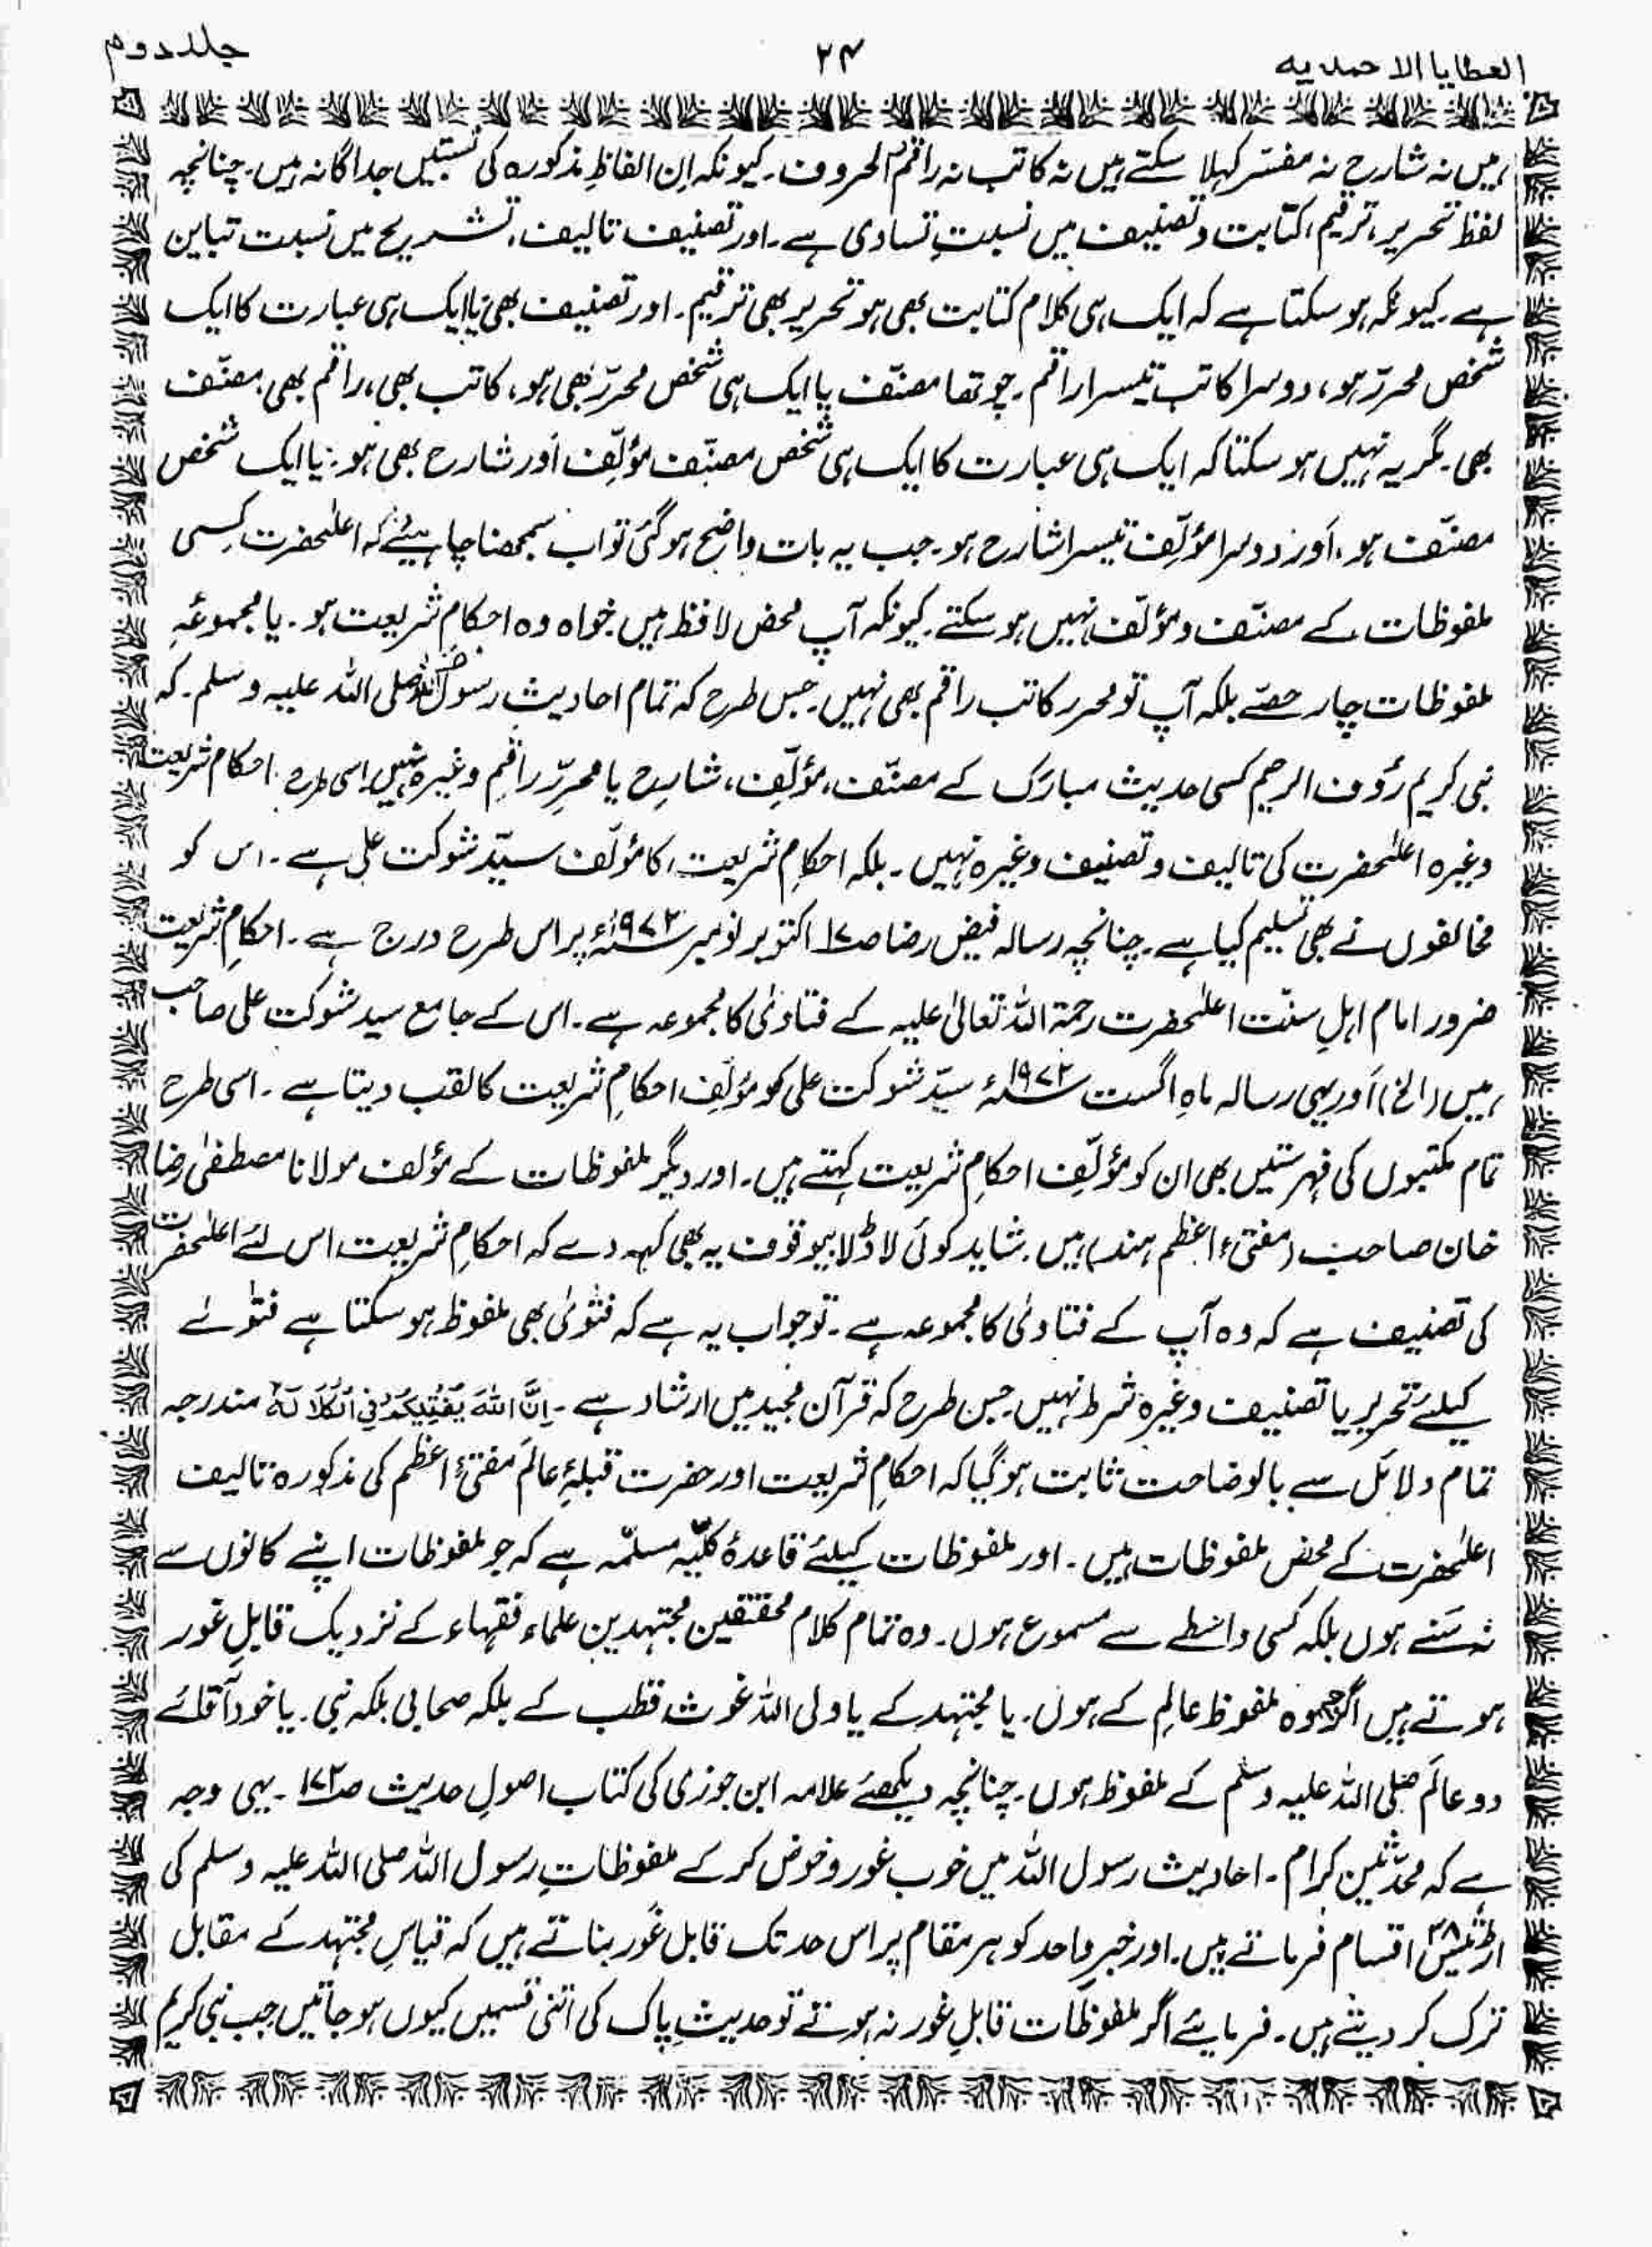 العطایا الاحمدیہ ۲۴ جلد دوم
ہیں نہ شارح نہ مفسّر کہلا سکتے ہیں نہ کاتب نہ راقم الحروف۔ کیونکہ اِن الفاظِ مذکورہ کی نسبتیں جداگانہ ہیں۔ چنانچہ
لفظ تحریر، ترقیم، کتابت و تصنیف میں نسبتِ تساوی ہے۔ اور تصنیف تالیف، تشریح میں نسبت تباین
ہے۔ کیونکہ ہو سکتا ہے کہ ایک ہی کلام کتابت بھی ہو تحریر بھی ترقیم۔ اور تصنیف بھی یا ایک ہی عبارت کا ایک
شخص محرّر ہو، دوسرا کاتب تیسرا راقم۔ چوتھا مصنّف یا ایک ہی شخص محرّر بھی ہو، کاتب بھی، راقم بھی، مصنّف
بھی۔ مگر یہ نہیں ہو سکتا کہ ایک ہی عبارت کا ایک ہی شخص مصنّف مؤلّف اور شارح بھی ہو۔ یا ایک شخص
مصنّف ہو، اور دوسرا مؤلّف تیسرا شارح ہو۔ جب یہ بات واضح ہو گئی تو اب سمجھنا چاہیئے کہ اعلیٰحضرت کسی
ملفوظات کے مصنّف و مؤلّف نہیں ہو سکتے۔ کیونکہ آپ محض لافظ ہیں خواہ وہ احکامِ شریعت ہو۔ یا مجموعۂ
ملفوظات چار حصّے بلکہ آپ تو محرر کاتب راقم بھی نہیں۔ جس طرح کہ تمام احادیث رسول اللہ صلی اللہ علیہ وسلم۔ کہ
نبی کریم رؤف الرحیم کسی حدیث مبارک کے مصنّف، مؤلّف، شارح یا محرِّر راقم وغیرہ نہیں اسی طرح احکام شریعت
وغیرہ اعلیٰحضرت کی تالیف و تصنیف وغیرہ نہیں۔ بلکہ احکامِ شریعت کا مؤلّف سیّد شوکت علی ہے۔ اس کو
مخالفوں نے بھی تسلیم کیا ہے۔ چنانچہ رسالہ فیض رضا صـ۱۷ اکتوبر نومبر ۱۹۷۲ء پر اس طرح درج ہے۔ احکامِ شریعت
ضرور امام اہلِ سنّت اعلیٰحضرت رحمۃ اللہ تعالیٰ علیہ کے فتاوٰی کا مجموعہ ہے۔ اس کے جامع سید شوکت علی صاحب
ہیں (الخ) اور یہی رسالہ ماہِ اگست ۱۹۷۲ء سیّد شوکت علی کو مؤلّف احکامِ شریعت کا لقب دیتا ہے۔ اسی طرح
تمام مکتبوں کی فہرستیں بھی ان کو مؤلّف احکامِ شریعت کہتے ہیں۔ اور دیگر ملفوظات کے مؤلف مولانا مصطفیٰ رضا
خان صاحب (مفتیٔ اعظم ہند) ہیں۔ شاید کوئی لاڈلا بیوقوف یہ بھی کہہ دے کہ احکامِ شریعت اس لئے اعلیٰحضرت
کی تصنیف ہے کہ وہ آپ کے فتاوٰی کا مجموعہ ہے۔ تو جواب یہ ہے کہ فتوٰی بھی ملفوظ ہو سکتا ہے فتوٰے
کیلئے تحریر یا تصنیف وغیرہ شرط نہیں۔ جس طرح کہ قرآن مجید میں ارشاد ہے۔ اِنَّ اللّٰہَ یُفْتِیْکُمْ فِی الْکَلَالَۃِ مندرجہ
تمام دلائل سے بالوضاحت ثابت ہو گیا کہ احکامِ شریعت اور حضرت قبلۂِ عالَم مفتیٔ اعظم کی مذکورہ تالیف
اعلیٰحضرت کے محض ملفوظات ہیں۔ اور ملفوظات کیلئے قاعدۂ کلّیّہ مسلّمہ ہے کہ جو ملفوظات اپنے کانوں سے
نہ سُنے ہوں بلکہ کسی واسطے سے مسموع ہوں۔ وہ تمام کلام محققین مجتہدین علماء فقہاء کے نزدیک قابلِ غور
ہوتے ہیں اگرچہ وہ ملفوظ عالِم کے ہوں۔ یا مجتہد کے یا ولی اللہ غوث قطب کے بلکہ صحابی بلکہ نبی۔ یا خود آقائے
دو عالَم صلی اللہ علیہ وسلم کے ملفوظ ہوں۔ چنانچہ دیکھئے علامہ ابن جوزی کی کتاب اصولِ حدیث صـ۱۷۲۔ یہی وجہ
ہے کہ محدّثین کرام۔ احادیث رسول اللہ میں خوب غور وخوض کر کے ملفوظاتِ رسول اللہ صلی اللہ علیہ وسلم کی
اڑتیس ۳۸ اقسام فرماتے ہیں۔ اور خبرِ واحد کو ہر مقام پر اس حد تک قابل غور بناتے ہیں کہ قیاسِ مجتہد کے مقابل
ترک کر دیتے ہیں۔ فرمایئے اگر ملفوظات قابلِ غور نہ ہوتے تو حدیثِ پاک کی اتنی قسمیں کیوں ہو جاتیں جب نبی کریم